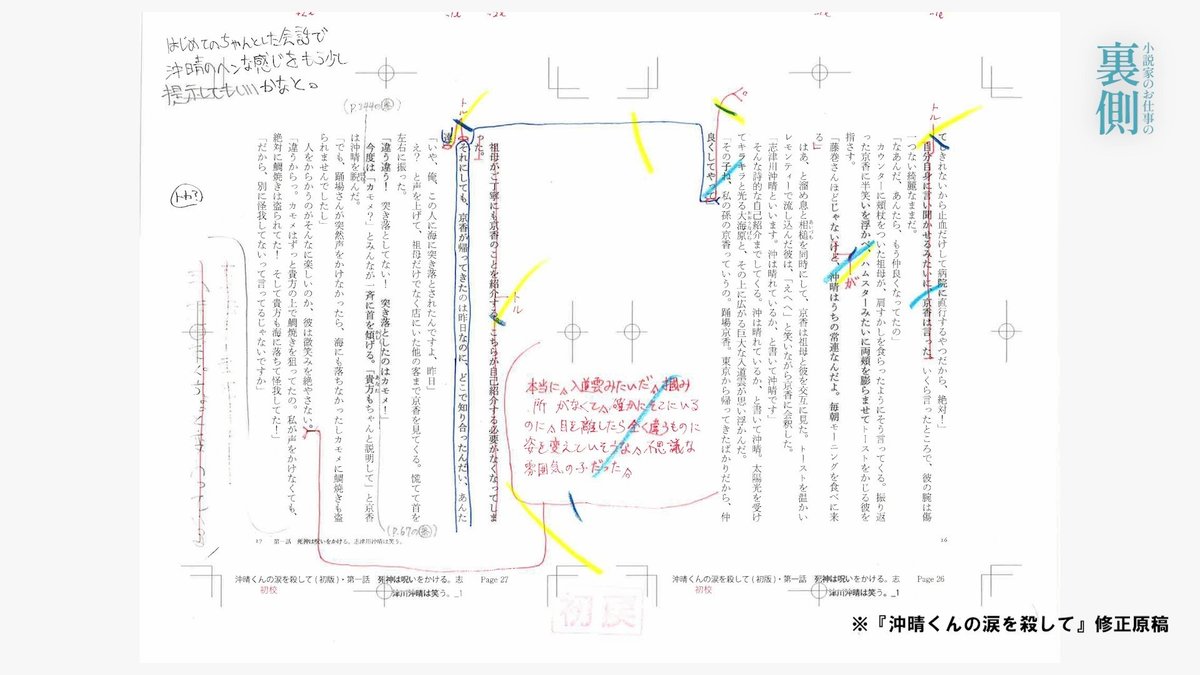 小説家のお仕事の
裏側
はじめてのちゃんとした会話で
沖晴のヘンな感じをもう少し
提示してもいいかなと。
(P.244の㊟)
トル
トルツメ
てしきれないから止血だけして病院に直行するやつだから、絶対！」
自分自身に言い聞かせるみたいに、京香は言った。いくら言ったところで、彼の腕は傷
一つない綺麗なままだ。
「なあんだ、あんたら、もう仲良くなってたの」
カウンターに頬杖をついた祖母が、肩すかしを食らったようにそう言ってくる。振り返
った京香に半笑いを浮かべ、ハムスターみたいに両頬を膨らませてトーストをかじる彼を
指さす。
「藤巻さんほどじゃないけど、沖晴はうちの常連なんだよ。毎朝モーニングを食べに来
る」
が
はあ、と溜め息と相槌を同時にして、京香は祖母と彼を交互に見た。トーストを温かい
レモンティーで流し込んだ彼は、「えへへ」と笑いながら京香に会釈した。
「志津川沖晴といいます。沖は晴れているか、と書いて沖晴です」
そんな詩的な自己紹介までしてくる。沖は晴れているか、と書いて沖晴。太陽光を受け
てキラキラと光る大海原と、その上に広がる巨大な入道雲が思い浮かんだ。
「その子ね、私の孫の京香っていうの。踊場京香。東京から帰ってきたばかりだから、仲
良くしてやって」
本当に、入道雲みたいだ。掴み
所がなくて、確かにそこにいる
のに、目を離したら全く違うものに
姿を変えていそうな、不思議な
雰囲気の子だった。
祖母がご丁寧にも京香のことを紹介する。こちらが自己紹介する必要がなくなってしま
った。
「それにしても、京香が帰ってきたのは昨日なのに、どこで知り合ったんだい、あんた
達」
「いや、俺、この人に海に突き落とされたんですよ、昨日」
え？　と声を上げて、祖母だけでなく店にいた他の客まで京香を見てくる。慌てて首を
左右に振った。
「違う違う！　突き落としてない！　突き落としたのはカモメ！」
今度は「カモメ？」とみんなが一斉に首を傾げる。「貴方もちゃんと説明して」と京香
は沖晴を睨んだ。
「でも、踊場さんが突然声をかけなかったら、海にも落ちなかったしカモメに鯛焼きも盗
られませんでしたし」
人をからかうのがそんなに楽しいのか、彼は微笑みを絶やさない。
「違うからっ。カモメはずっと貴方の上で鯛焼きを狙ってたの。私が声をかけなくても、
絶対に鯛焼きは盗られてた！　そして貴方も海に落ちて怪我してた！」
「だから、別に怪我してないって言ってるじゃないですか」
(P.67の㊟)
27　第一話　死神は呪いをかける。志津川沖晴は笑う。
26
沖晴くんの涙を殺して(初版)・第一話　死神は呪いをかける。志
津川沖晴は笑う。_1
Page 27
初校
沖晴くんの涙を殺して(初版)・第一話　死神は呪いをかける。志
津川沖晴は笑う。_1
Page 26
初校
初戻
※『沖晴くんの涙を殺して』修正原稿